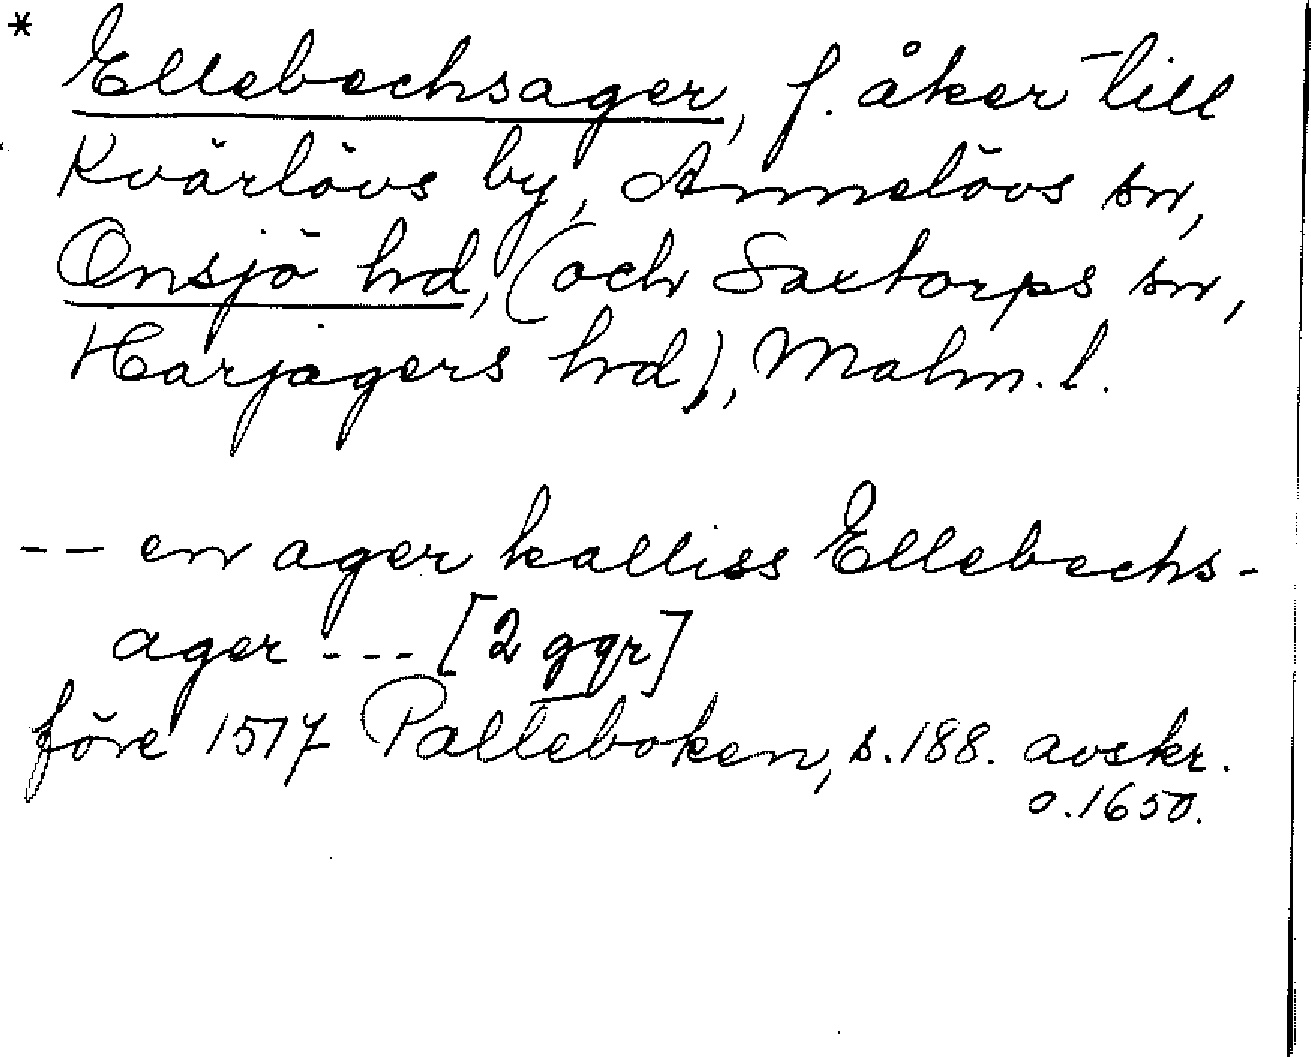 * Ellebechsager, f. åker till
Kvärlövs by, Annelövs sn,
Onsjö hd, (och Saxtorps sn,
Harjagers hd), Malm. l.
-- en ager kalliss Ellebechs-
ager --- [2 ggr]
före 1517 Palleboken, s. 188. avskr.
o. 1650.